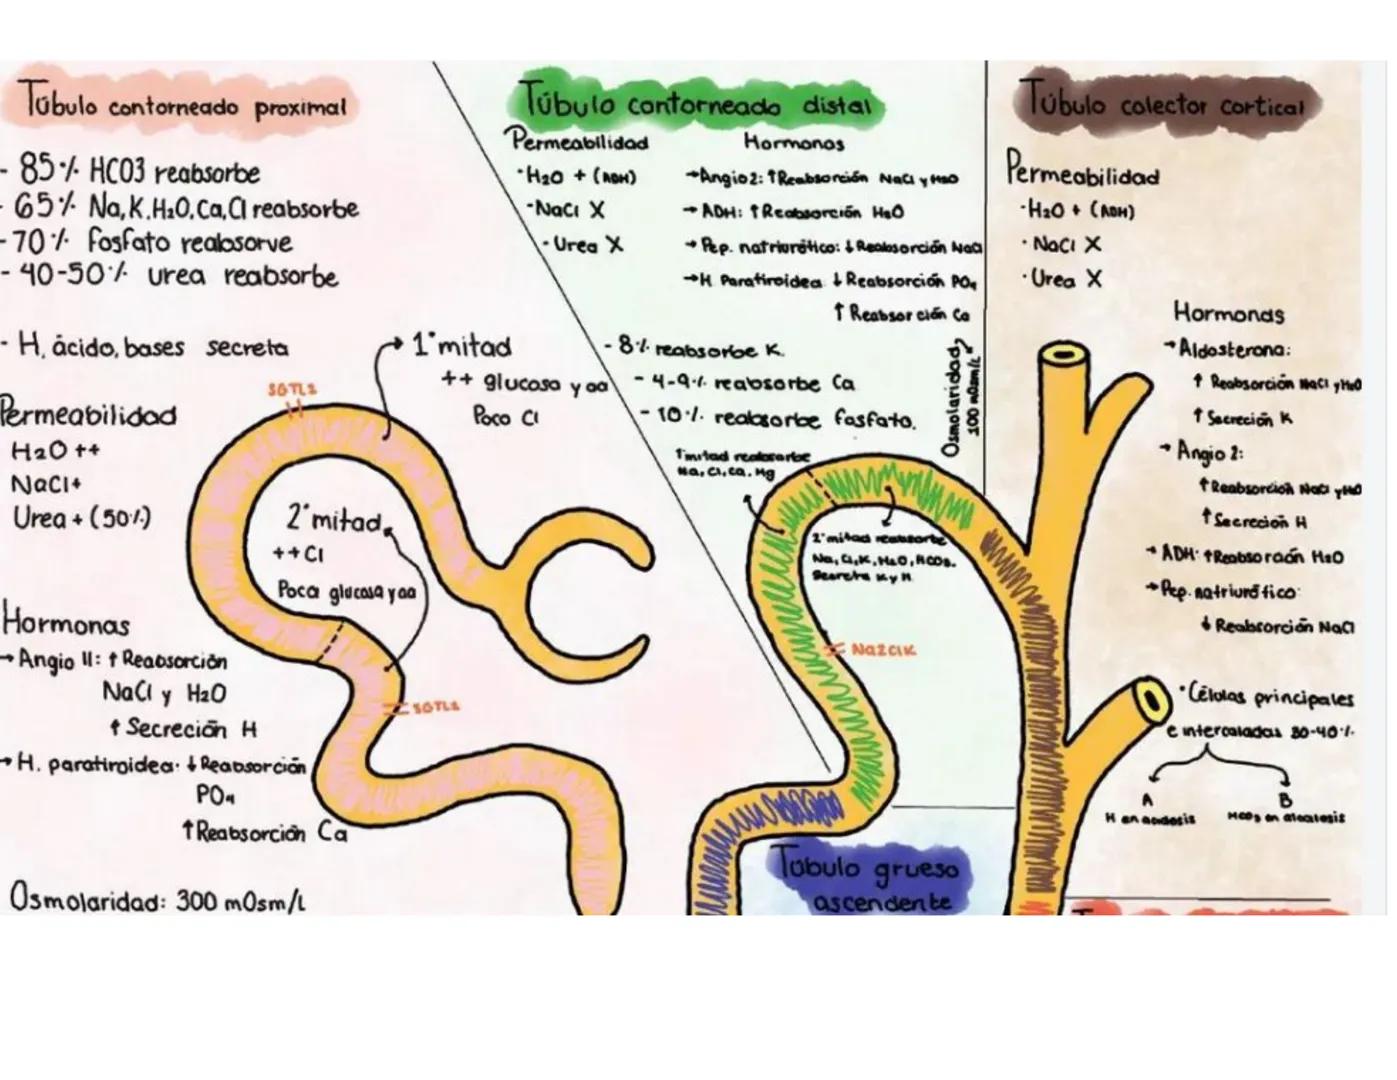 Túbulo contorneado proximal
- 85% HCO3 reabsorbe
- 65% Na, K, H2O, Ca, Cl reabsorbe
- 70% fosfato reabsorve
- 40-50% urea reabsorbe
- H, ácido, bases secreta
SGTL2
1°mitad
++ glucosa y aa
Poco Cl
Permeabilidad
H2O ++
NaCl+
Urea + (50%)
2°mitad
++Cl
Poca glucosa y aa
Hormonas
→ Angio II: ↑ Reabsorción
NaCl y H2O
↑ Secreción H
→ H. paratiroidea: ↓ Reabsorción
PO4
↑ Reabsorción Ca
Osmolaridad: 300 mOsm/L
Túbulo contorneado distal
Permeabilidad
·H2O + (ADH)
·NaCl X
·Urea X
Hormonas
→Angio2: ↑Reabsorción NaCl y H2O
→ ADH: ↑Reabsorción H2O
→ Pep. natriurético: ↓ Reabsorción NaCl
→H. Paratiroidea ↓ Reabsorción PO4
↑ Reabsorción Ca
- 8% reabsorbe K.
- 4-9% reabsorbe Ca
- 10% reabsorbe fosfato.
Osmolaridad
100 mOsm/L
1°mitad reabsorbe
Na, Cl, Ca, Mg
2°mitad reabsorbe
Na, Cl, K, H2O, HCO3.
Secreta K y H
Na2ClK
Túbulo grueso
ascendente
Túbulo colector cortical
Permeabilidad
·H2O + (ADH)
·NaCl X
·Urea X
Hormonas
→Aldosterona:
↑ Reabsorción NaCl y H2O
↑ Secreción K
→ Angio 2:
↑Reabsorción NaCl y H2O
↑Secreción H
→ ADH: ↑Reabsorción H2O
→Pep. natriurético:
↓ Reabsorción NaCl
·Células principales
e intercaladas 30-40%
A
H en acidosis
B
HCO3 en alcalosis